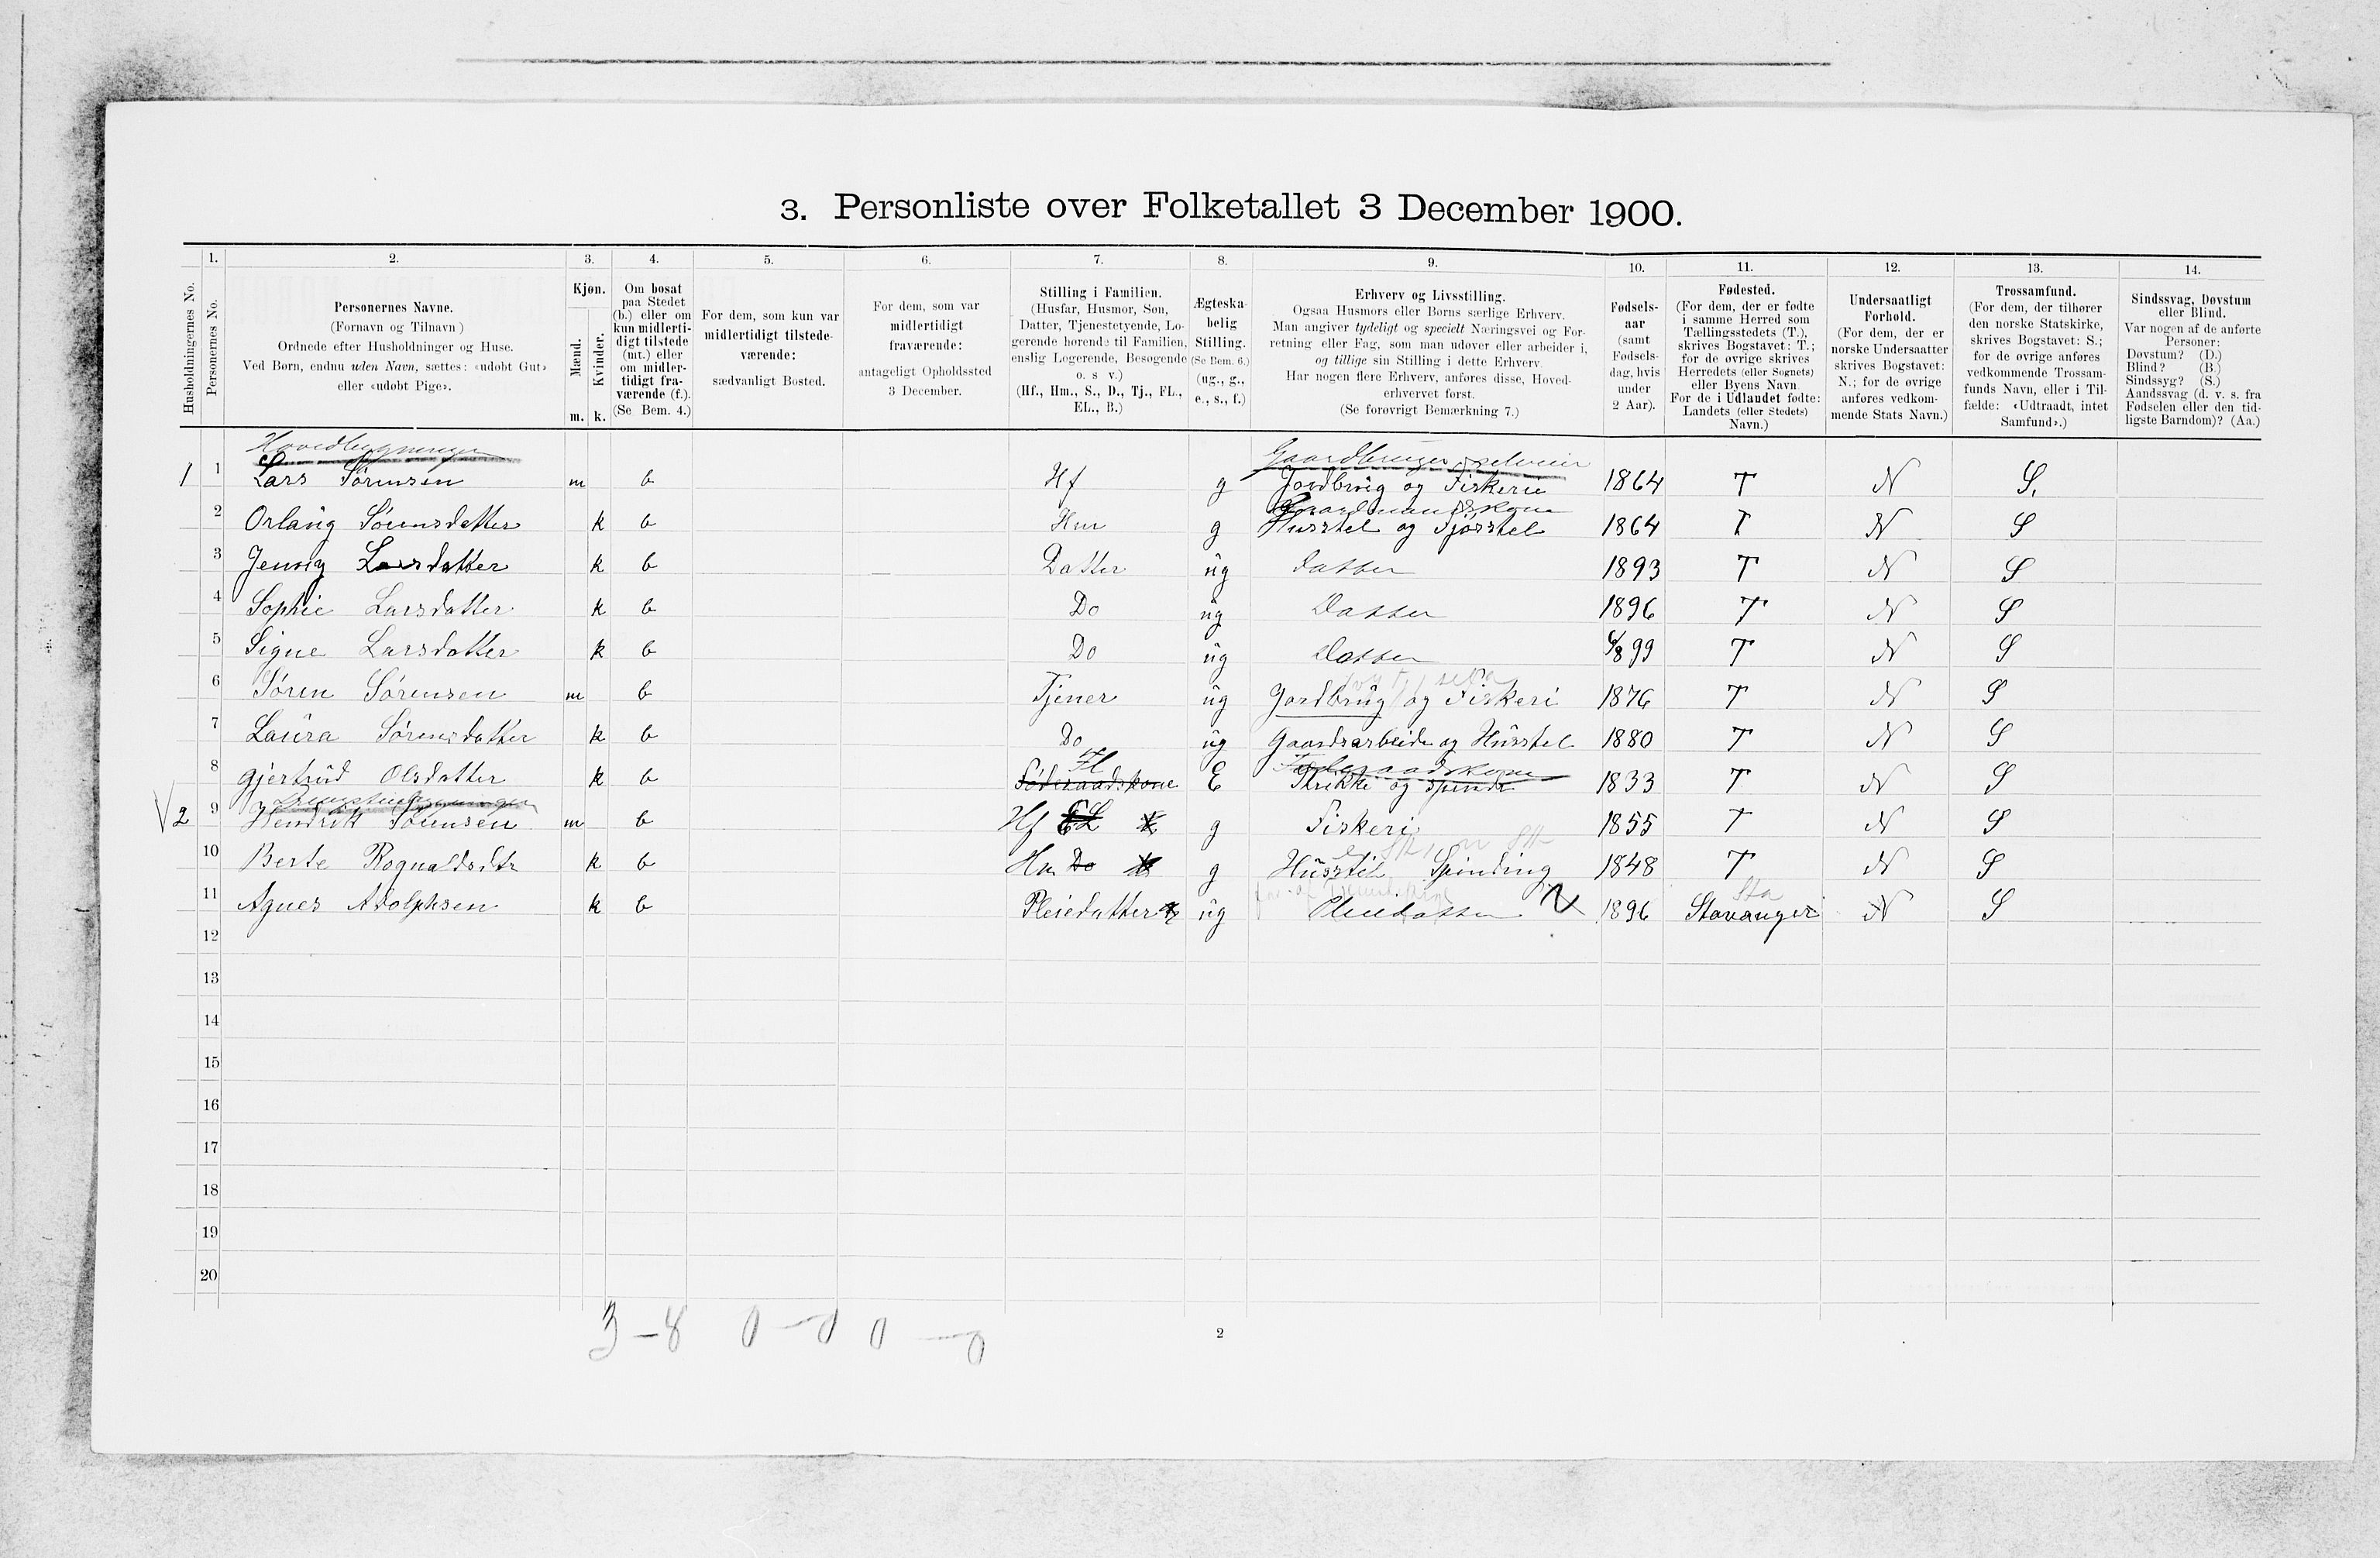 3. Personliste over Folketallet 3 December 1900.
Husholdningernes No.
1.
Personernes No.
2.
Personernes Navne.
(Fornavn og Tilnavn)
Ordnede efter Husholdninger og Huse.
Ved Børn, endnu uden Navn, sættes: «udøbt Gut»
eller «udøbt Pige».
3.
Kjøn.
Mænd.
m.
Kvinder.
k.
4.
Om bosat
paa Stedet
(b.) eller om
kun midlerti-
digt tilstede
(mt.) eller
om midler-
tidigt fra-
værende (f.).
(Se Bem. 4.)
5.
For dem, som kun var
midlertidigt tilstede-
værende:
sædvanligt Bosted.
6.
For dem, som var
midlertidigt
fraværende:
antageligt Opholdssted
3 December.
7.
Stilling i Familien.
(Husfar, Husmor, Søn,
Datter, Tjenestetyende, Lo-
gerende hørende til Familien,
enslig Logerende, Besøgende
o. s v.)
(Hf., Hm., S., D., Tj., FL.,
EL., B.)
8.
Ægteska-
belig
Stilling.
(Se Bem. 6.)
(ug., g.,
e., s., f.)
9.
Erhverv og Livsstilling.
Ogsaa Husmors eller Børns særlige Erhverv.
Man angiver tydeligt og specielt Næringsvei og For-
retning eller Fag, som man udøver eller arbeider i,
og tillige sin Stilling i dette Erhverv.
Har nogen flere Erhverv, anføres disse, Hoved-
erhvervet først.
(Se forøvrigt Bemærkning 7.)
10.
Fødsels-
aar
(samt
Fødsels-
dag, hvis
under
2 Aar).
11.
Fødested.
(For dem, der er fødte
i samme Herred som
Tællingsstedets (T.),
skrives Bogstavet: T.;
for de øvrige skrives
Herredets (eller Sognets)
eller Byens Navn.
For de i Udlandet fødte:
Landets (eller Stedets)
Navn.)
12.
Undersaatligt
Forhold.
(For dem, der er
norske Undersaatter
skrives Bogstavet:
N.; for de øvrige
anføres vedkom-
mende Stats Navn.)
13.
Trossamfund.
(For dem, der tilhører
den norske Statskirke,
skrives Bogstavet: S.;
for de øvrige anføres
vedkommende Trossam-
funds Navn, eller i Til-
fælde: «Udtraadt, intet
Samfund».)
14.
Sindssvag, Døvstum
eller Blind.
Var nogen af de anførte
Personer:
Døvstum? (D.)
Blind? (B.)
Sindssyg? (S.)
Aandssvag (d. v. s. fra
Fødselen eller den tid-
ligste Barndom)? (Aa.)
Hovedbygningen Gaardbruger selveier
1 1 Lars Sørensen m b Hf g Jordbrug og Fiskerie 1864 T N S.
Gaardmandskone
2 Orlaug Sørensdatter k b Hm g Husstel og Fjøsstel 1864 T N S
3 Jenny Larsdatter k b Datter ug datter 1893 T N S
4 Sophie Larsdatter k b Do ug Datter 1896 T N S
5 Signe Larsdatter k b Do ug Datter 6/8 99 T N S
6 Søren Sørensen m b Tjener ug Jordbrug og Fiskeri 1876 T N S
7 Laura Sørensdatter k b Do ug Gaardsarbeide og Husstel 1880 T N S
Fl Føderaadskone
8 Gjertrud Olsdatter k b Føderaadskone E Strikke og spinde 1833 T N S
2 9 Hendrik Sørensen m b Hf EL g Fiskeri 1855 T N S
10 Berte Rognaldsdtr k b Hm Do g Husstel Spinding 1848 T N S
Sta
11 Agnes Adolphsen k b Pleiedatter ug Pleiedatter 1896 Stavanger N S
12
13
14
15
16
17
18
19
20
3 – 8 0 – 0 0 – 0
2